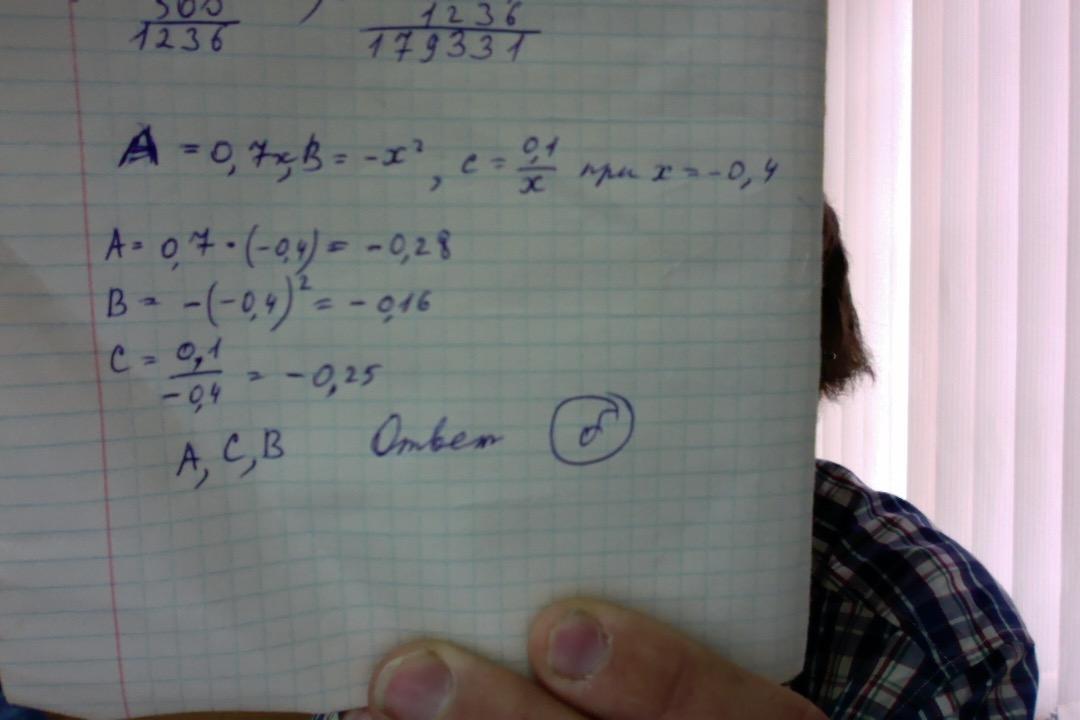 1236
1236
179331
A = 0,7x, B = -x², c = 0,1/x при x = -0,4
A = 0,7 · (-0,4) = -0,28
B = -(-0,4)² = -0,16
C = 0,1/-0,4 = -0,25
A, C, B Ответ б